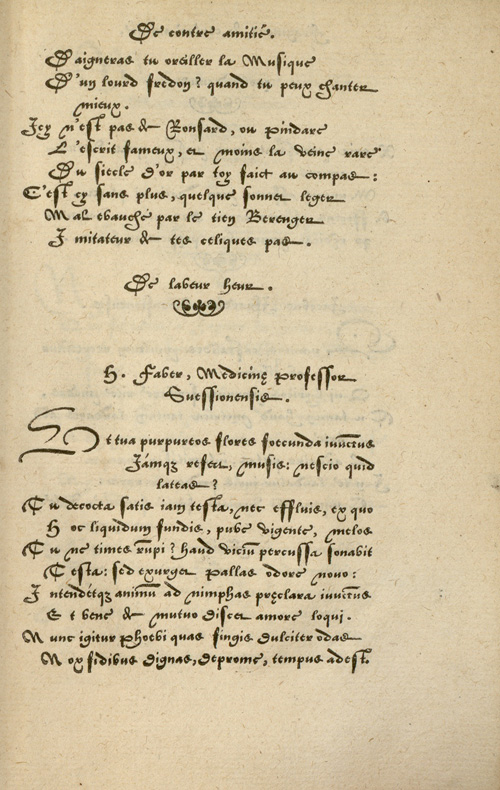 De contre amitié.
Daigneras tu oreiller la Musique
D'un lourd fredon? quand tu peux chanter
mieux.
Icy n'est pas de Ronsard, ou Pindare
L'escrit fameux, et moins la veine rare
Du siecle d'or par toy faict au compas:
C'est cy sans plus, quelque sonnet leger
Mal ebauché par le tien Berenger
Imitateur de tes celiques pas.
De labeur heur.
H. Faber, Medicinę Professor
Suessionensis.
Et tua purpureos flores foecunda iuuētus
Jámqz refert, musis: nescio quid
lateas?
Tu decocta satis iam testa, nec effluis, ex quo
Hoc liquidum fundis, pube vigente, melos
Tu ne times rūpi? haud viciū percussa sonabit
Testa: sed exurget Pallas odore novo:
Intendétqz animū ad nimphas pręclara iuuētus
Et bene de mutuo discet amore loqui.
Nunc igitur Phoebi quas fingis dulciter odas
Mox fidibus dignas, deprome, tempus adest.